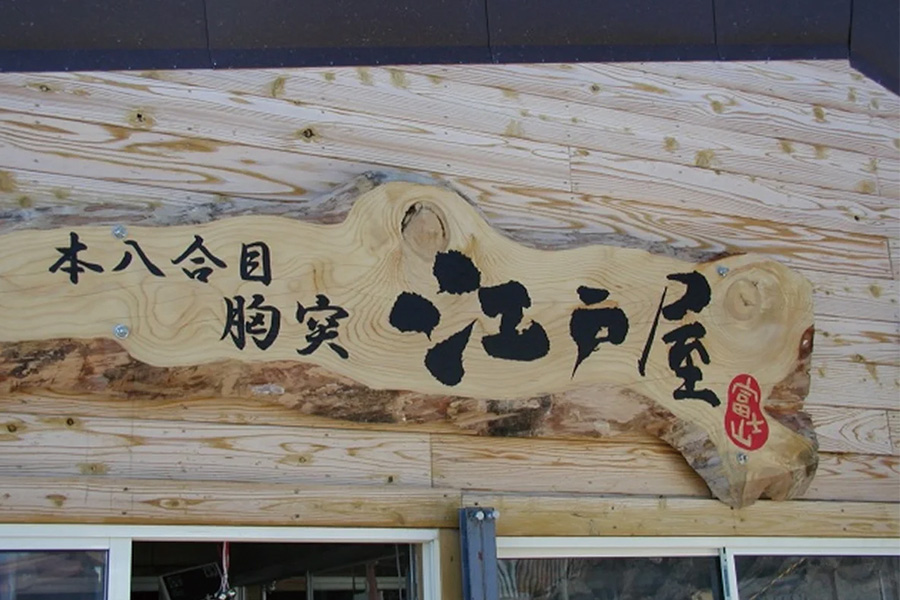 本八合目
胸突
江戸屋
富士山